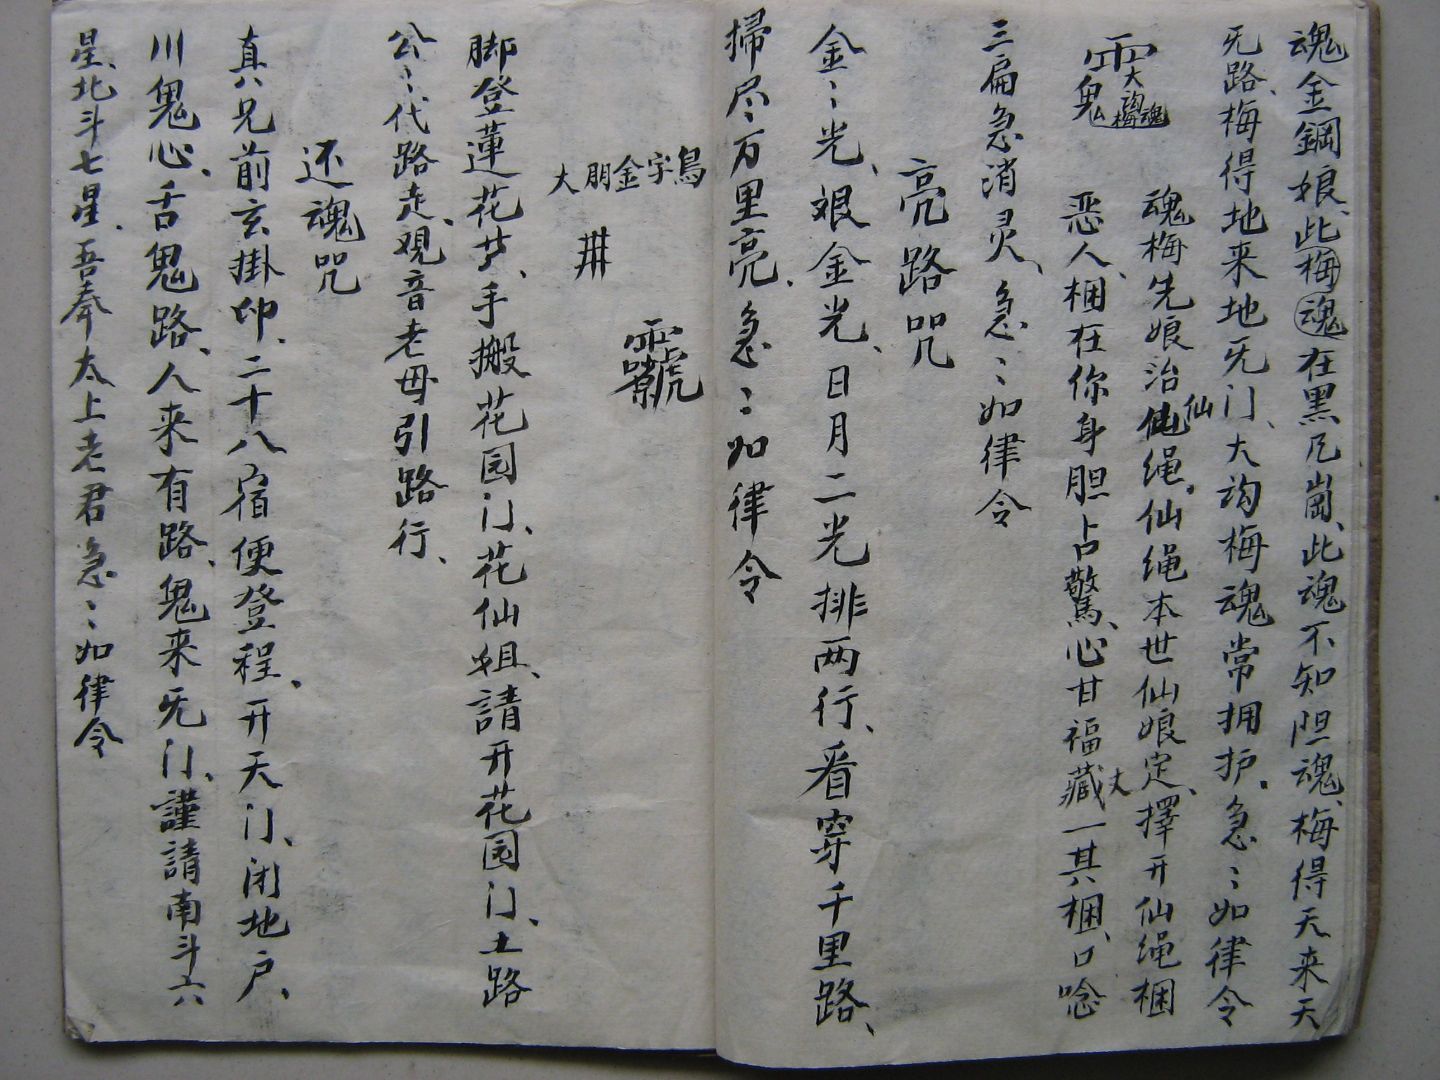 魂金鋼娘、此梅魂在黑凡崗、此魂不知胆魂、梅得天来天
旡路、梅得地来地旡门、大汮梅魂常拥护、急〻如律令
魂梅先娘治仙绳、仙绳本世仙娘定、擇开仙绳梱
恶人、梱在你身胆占驚、心甘福藏一其梱、口唸
三扁急消灵、急〻如律令
亮路咒
金〻光、艰金光、日月二光排两行、看穿千里路、
掃尽万里亮、急〻如律令
大朋金字鳥
脚登蓮花芽、手搬花园门、花仙姐、請开花园门、土路
公〻代路走、观音老母引路行、
还魂咒
真兄前玄掛印、二十八宿便登程、开天门、闭地户、
川鬼心、舌鬼路、人来有路、鬼来旡门、謹請南斗六
星、北斗七星、吾奉太上老君急〻如律令